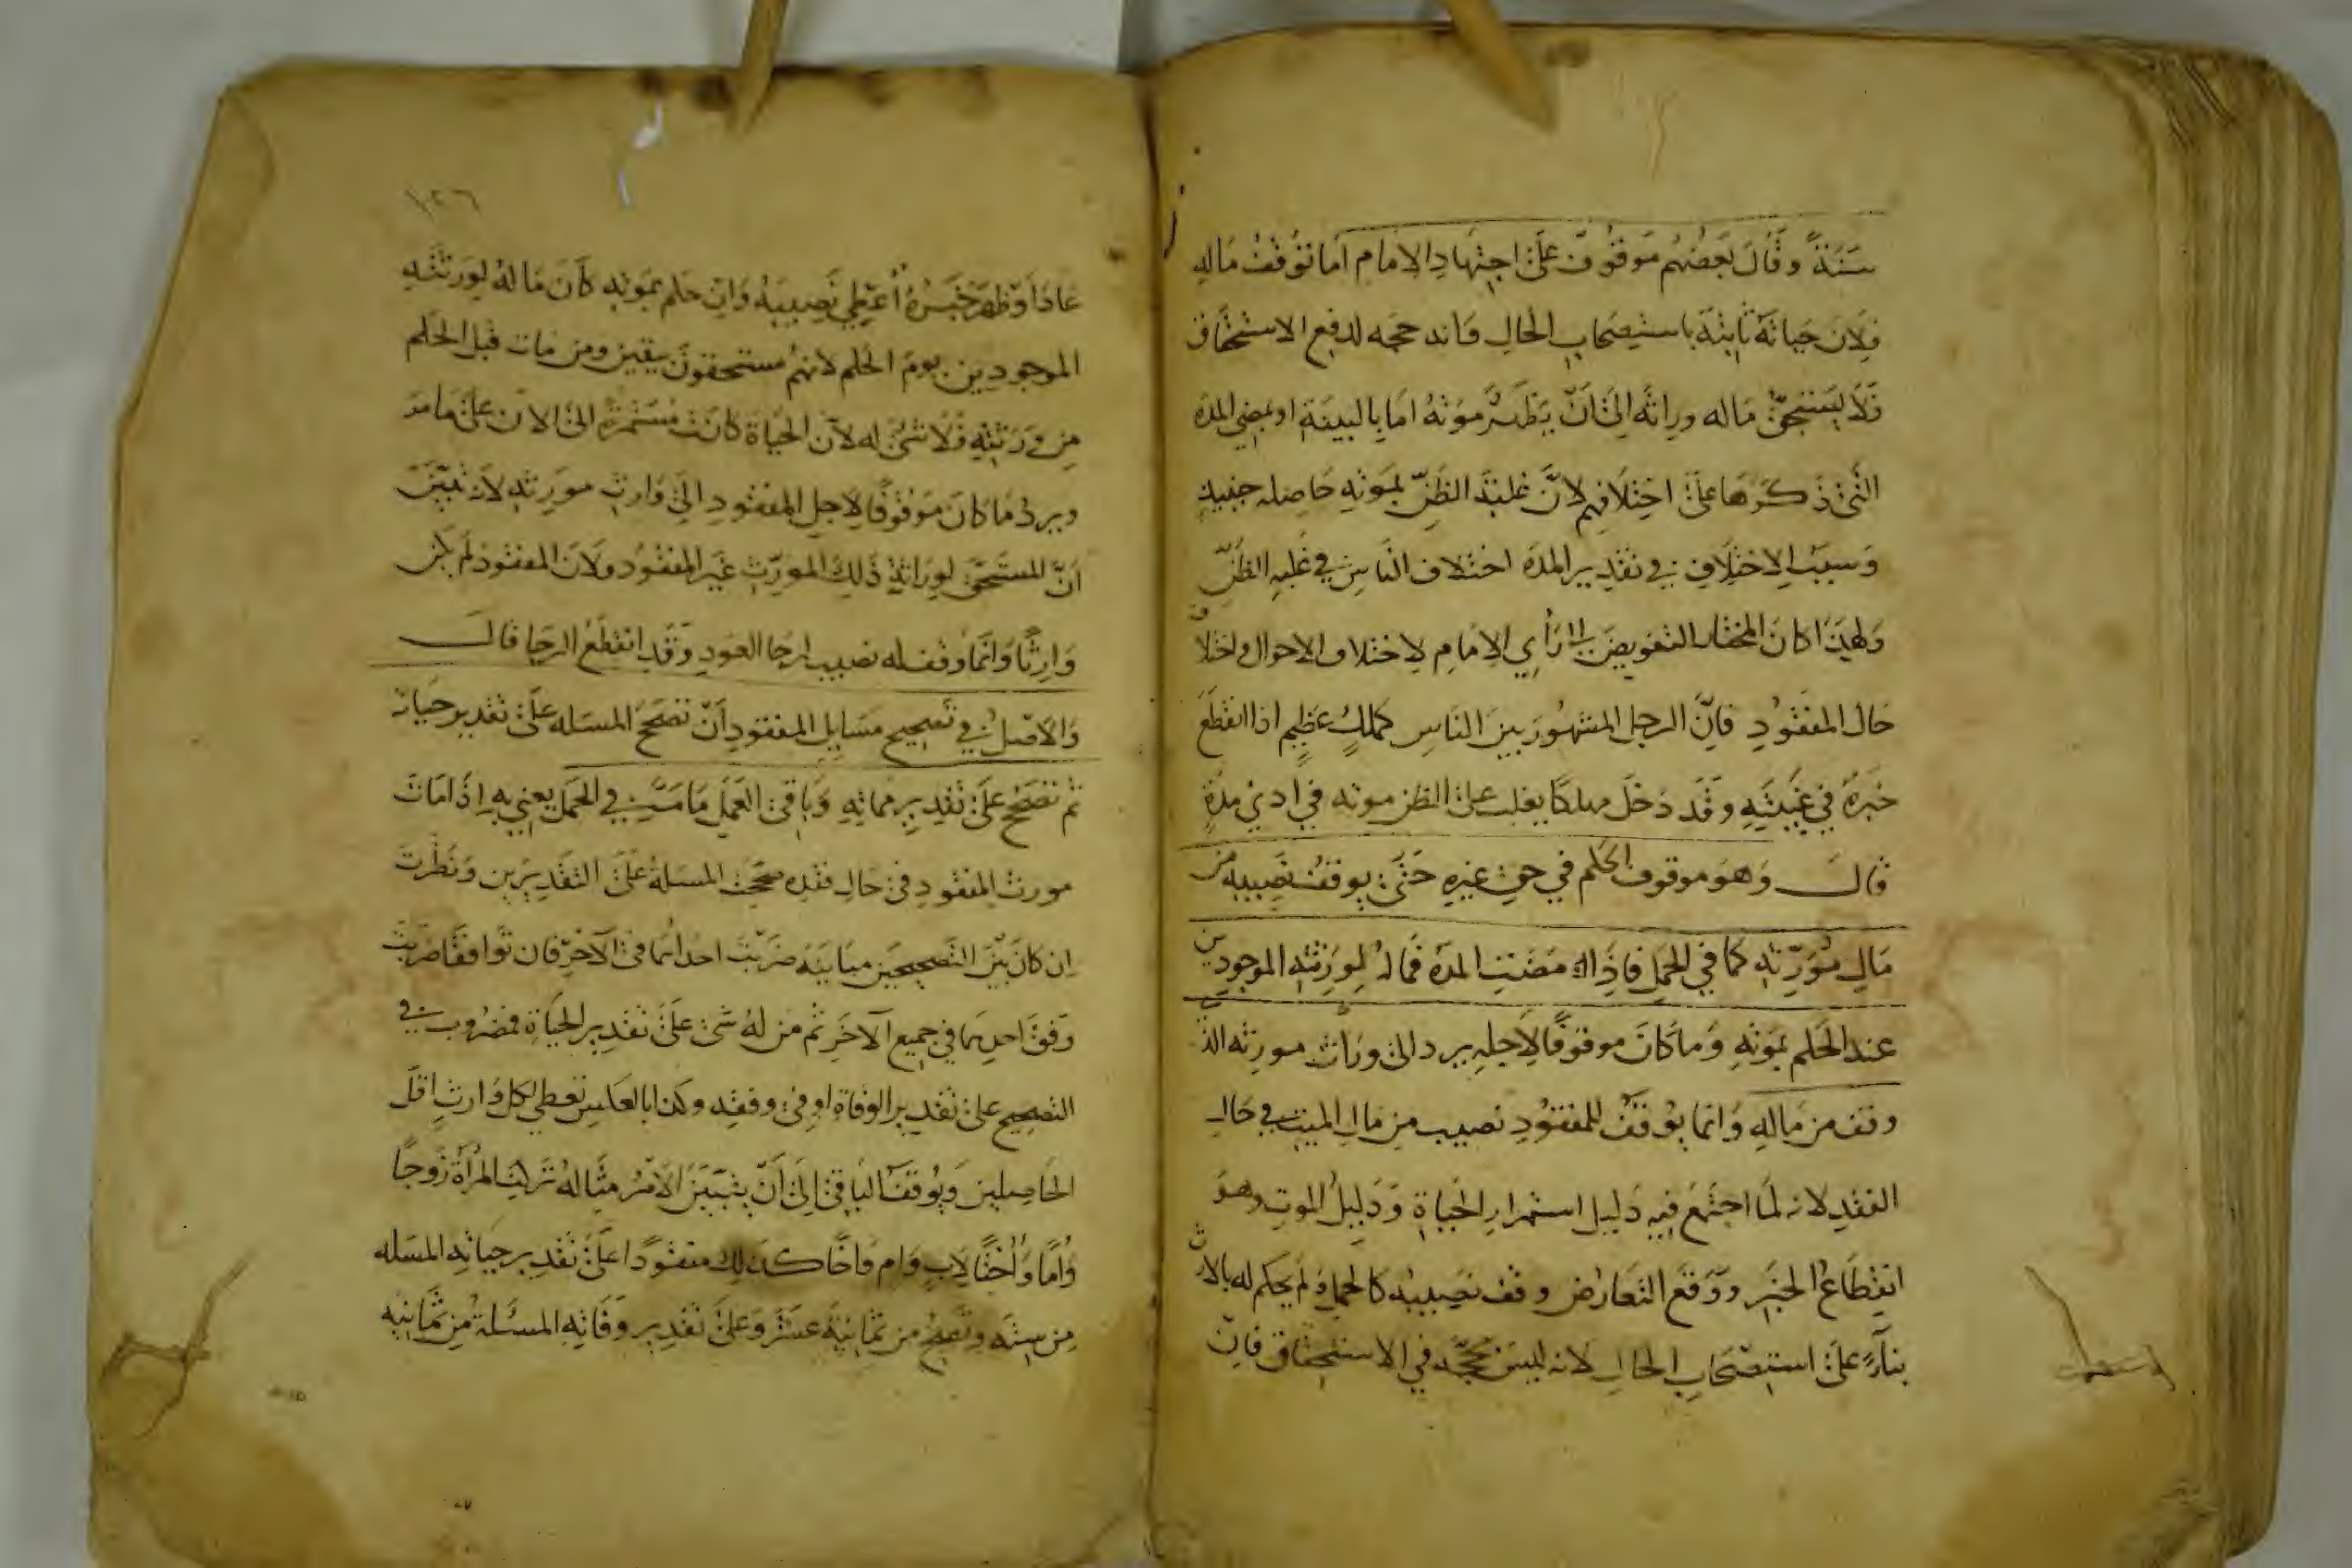 سَنَةً وقَالَ بَعْضُهُم مَوقُوفٌ عَلَى اجتِهَادِ الامَامِ امَا تَوَقفُ مَالِهِ
فلِاَن حَياتَهُ ثابِتَةٌ باستِصحَابِ الحَالِ فانه حجه لدفع الاستحقاق
فَلَا يَستَحِقُّ مَاله وراثَه الىَ اَنْ يَظهَرَ مَوتُهُ امَا بِالبينَةِ او بمضي المدَه
التي ذكرهَا عَلىَ اختِلَافِهم لانَّ غلبَةَ الظَنِّ بموتِهِ حَاصله حينيذٍ
وَسَبَبُ الاختِلَافِ في تقدِير المدَه اختلاف الناسِ في غَلبه الظَنِّ
وَلهذَا كانَ المختَار التفويضَ الى رَأيِ الامَامِ لاختلاف الاحوال واختلاف
حَال المفقُودِ فاِنَّ الرجل المشهُورَ بينَ النَاسِ كملكٍ عَظِيمٍ اذا انقطَعَ
خبَرهُ في غَيبتِهِ وقَد دَخَلَ مهلكًا يغلب على الظن موته في ادني مدةٍ
قال وَهوَ موقوف الحكم في حق غيرِهِ حَتَّى يوقفُ نَصِيبه من
مَالِ مُوَرِّثِهِ كما في الحَمل فاِذَا مضَتِ المدَه فمَالهُ لِورَثتِهِ الموجودين
عند الحَكم بمَوتِهِ وَمَا كَانَ موقوفًا لِاَجلِهِ يرد الى وارث مورثه الذ
وقف من مَالِهِ وَانما يوقَفُ للمفقُودِ نصيب من مَالِ الميت في حَالِ
الفَقدِ لانه لَمَا اجتَمعَ فيهِ دَليل استمرار الحَياةِ وَدَلِيلُ الموتِ وهوَ
انقِطَاعُ الخبَرِ ووَقعَ التعَارُض وقف نَصِيبُه كالحمل وَلم يحكم له بالارث
بِناءً عَلىَ استِصْحَابِ الحَالِ لانه ليسَ بحُجَّه في الاستحقاق فاِنْ
١٢٦
عادَ اوَ ظهَرَ خبَرهُ اُعطِي نَصِيبَهُ وَان حكم بموتِه كَانَ مَا لهُ لِورَثتهِ
الموجودِين يومَ الحكم لانهُم مستحقونَ بيقين ومن مَات قبل الحكم
مِن وَرَثتِهِ فَلا شىَ له لاَن الحيَاة كانَت مُستَمرةً الىَ الان علىَ مَا مر
ويرد مَا كانَ مَوقوفًا لاجل المفقُودِ الىَ وَارِثِ مورِثه لانه تبَيّنَ
اَنَّ المستَحقَ لوِرَاثةِ ذَلِكَ المورِّثِ غَير المفقُود ولَان المفقُود لم يكن
وَارِثًا وَانّمَا وقف له نصيب لرجا العَودِ وَقَد انقَطَعَ الرجَا قال
وَالاَصلُ في تَصحِيحِ مَسَايلِ المفقودِ اَنْ تصحَحَ المسَله عَلى تقدِير حَياته
ثم تصَحّح عَلىَ تَقدِيرِ ممَاتِهِ وَبَاقي العَمَلِ مَا مَرَّ في الحَمل يعني بِهِ اِذَا مَاتَ
مورث المفقودِ في حَال فقده صححت المسَلة عَلىَ التقدِيرَين وَنَظَرتَ
ان كانَ بَينَ التصحِيحَين مبَاينَة ضرَبتَ احدَاهُما في الآخَر فان توافقَا ضربت
وَفقَ احدِهمَا في جميعِ الآخَرِ ثم من لهُ شىَ عَلىَ تقدِير الحيَاةِ مضرُوب في
التصحِيح على تقدِير الوَفاةِ او في وفقه وكذا بالعَكس تعطي لكل وَارثٍ اقلَ
الحَاصِلين وَيُوقفُ البَاقي الىَ اَنْ يتبَيَّنَ الاَمر مثالهُ تركت المرأة زوجًا
وَاُمًّا وَاُختًا لِابٍ وَام وَاخًا كذلك مفقودًا عَلىَ تقدِير حيَاتِه المسَله
مِن سِتَه وتَصِحُ من ثمانيَةَ عشَرَ وَعَلىَ تقدِير وَفَاتِهِ المسئَلة مِن ثمَانيه